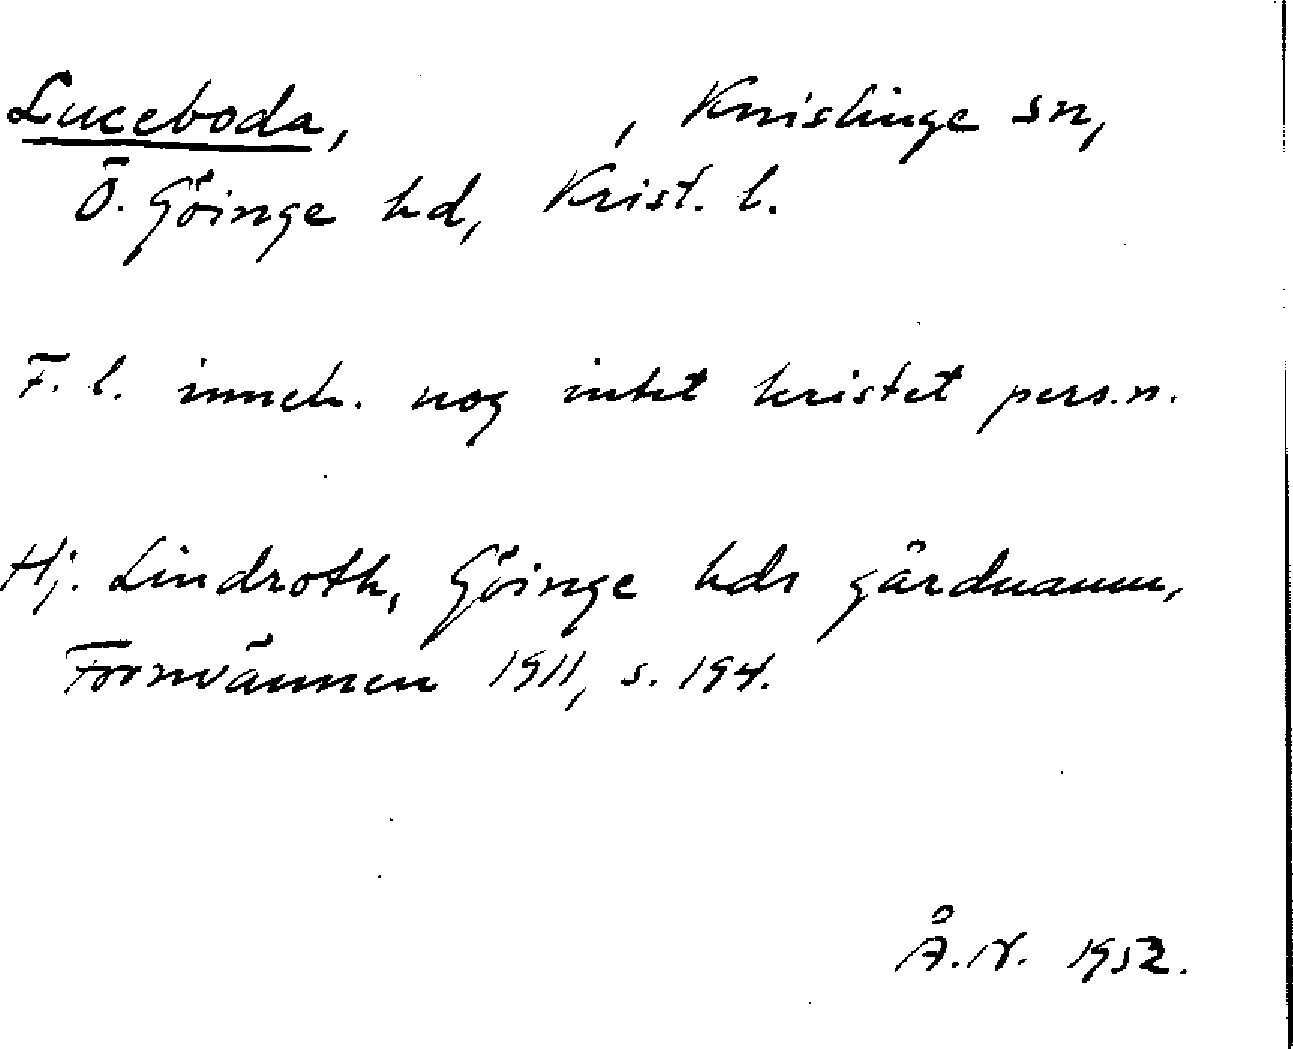 Luceboda, , Knislinge sn,
Ö. Göinge hd, Krist. l.
F. l. inneh. nog intet kristet pers.n.
Hj. Lindroth, Göinge hds gårdnamn,
Fornvännen 1911, s. 194.
Å.N. 1952.